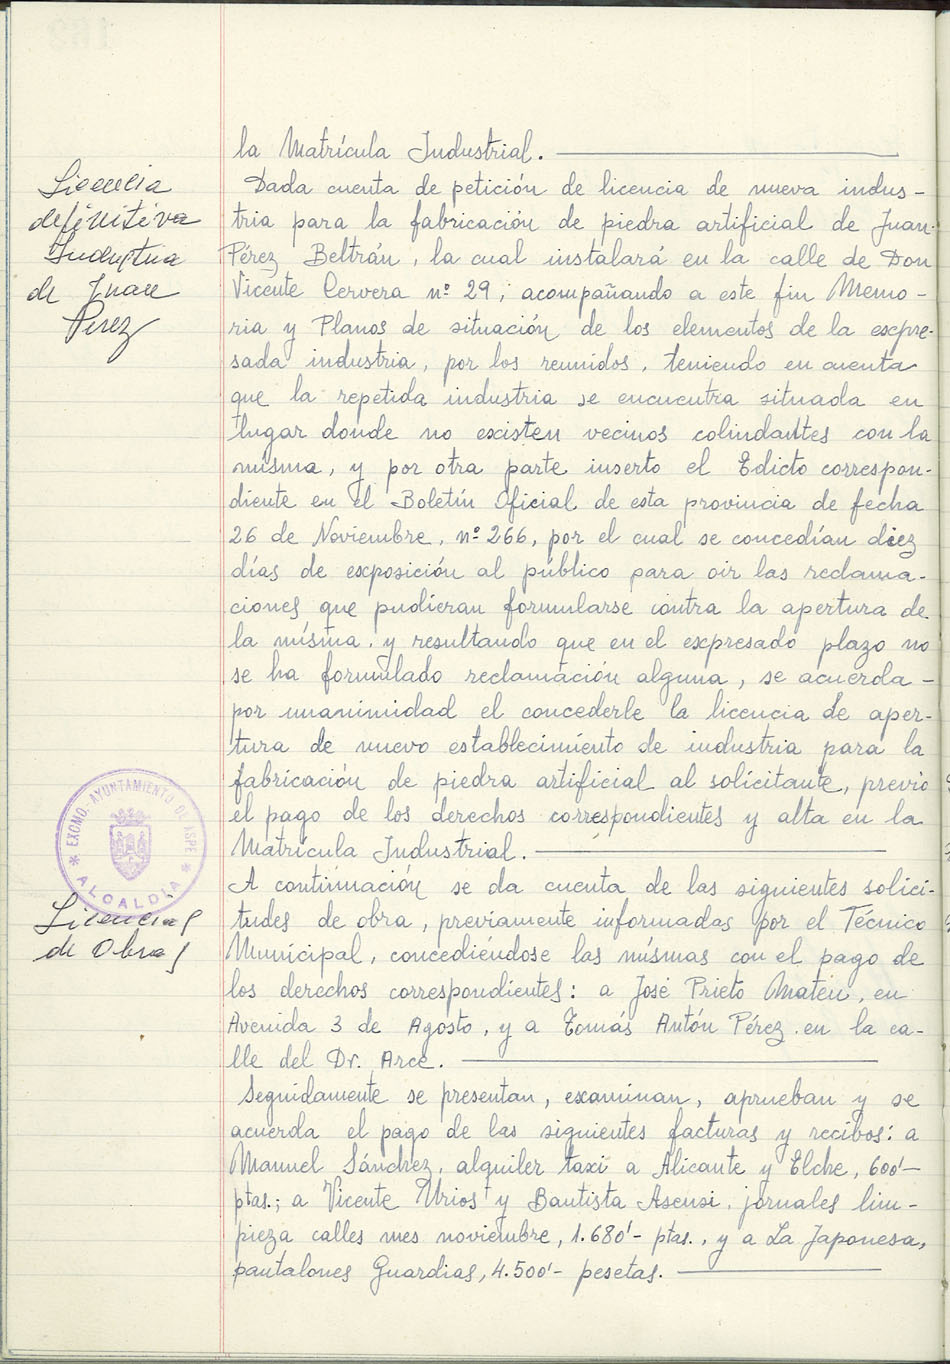 la Matrícula Industrial.
Licencia
definitiva
Industria
de Juan
Pérez
Dada cuenta de petición de licencia de nueva indus-
tria para la fabricación de piedra artificial de Juan
Pérez Beltrán, la cual instalará en la calle de Don
Vicente Cervera nº 29, acompañando a este fin Memo-
ria y Planos de situación de los elementos de la expre-
sada industria, por los reunidos, teniendo en cuenta
que la repetida industria se encuentra situada en
lugar donde no existen vecinos colindantes con la
misma, y por otra parte inserto el Edicto correspon-
diente en el Boletín Oficial de esta provincia de fecha
26 de Noviembre, nº 266, por el cual se concedían diez
días de exposición al público para oir las reclama-
ciones que pudieran formularse contra la apertura de
la misma, y resultando que en el expresado plazo no
se ha formulado reclamación alguna, se acuerda -
por unanimidad el concederle la licencia de aper-
tura de nuevo establecimiento de industria para la
fabricación de piedra artificial al solicitante, previo
el pago de los derechos correspondientes y alta en la
Matrícula Industrial.
EXCMO. AYUNTAMIENTO DE ASPE
* ALCALDÍA *
Licencias
de Obras
A continuación se da cuenta de las siguientes solici-
tudes de obra, previamente informadas por el Técnico
Municipal, concediéndose las mismas con el pago de
los derechos correspondientes: a José Prieto Mateu, en
Avenida 3 de Agosto, y a Tomás Antón Pérez en la ca-
lle del Dr. Arce.
Seguidamente se presentan, examinan, aprueban y se
acuerda el pago de las siguientes facturas y recibos: a
Manuel Sánchez, alquiler taxi a Alicante y Elche, 600'-
ptas.; a Vicente Urios y Bautista Asensi, jornales lim-
pieza calles mes noviembre, 1.680'- ptas., y a La Japonesa,
pantalones Guardias, 4.500'- pesetas.